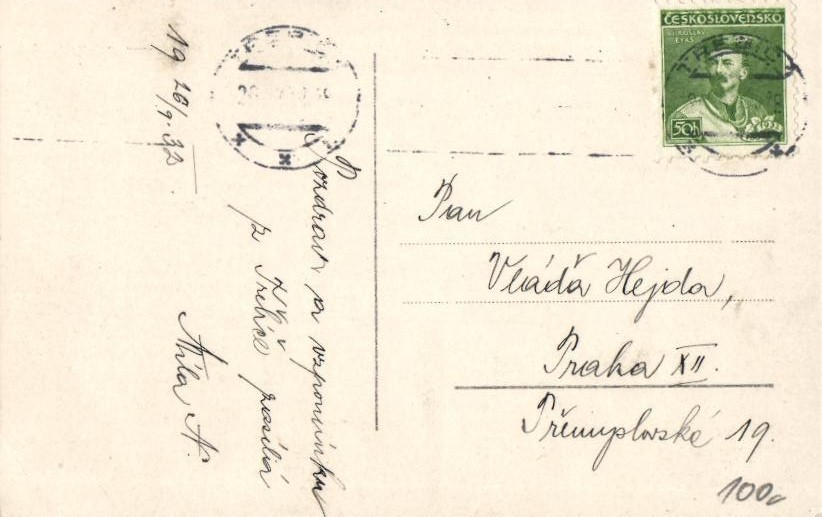 19 26/9. 32.
Pozdrav a vzpomínku
z Třebíče zasílá
Míla N.
ČESKOSLOVENSKO
MIROSLAV
TYRŠ
50h
Pan
Vláďa Hejda,
Praha XII.
Přemyslovská 19.
100,-